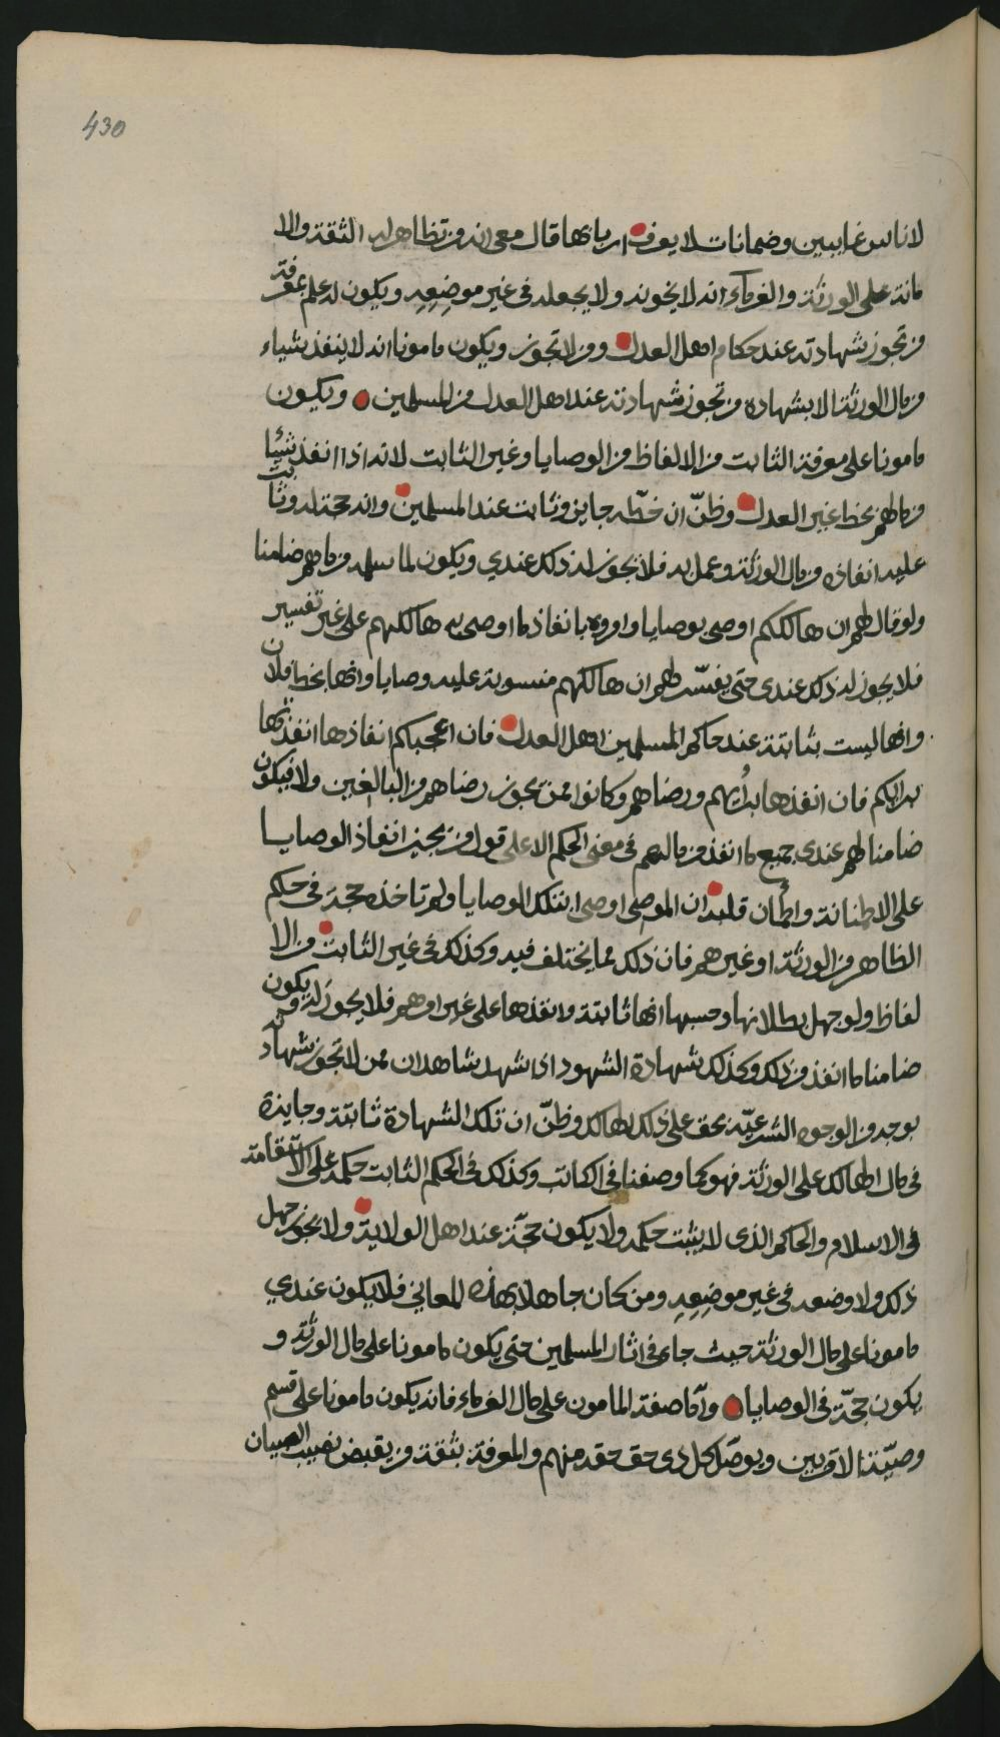 430
لاناس غايبين وضمانات لا يعرف اربابها قال معي انه من تظاهر له الثقة والا
مانة على الورثة والغرماء انه لا يخونه ولا يجعله في غير موضعه ويكون له علم بمعرفة
من تجوز شهادته عند حكام اهل العدل ومن لا تجوز ويكون مامونا انه لا ينفذ شياء
من مال الورثة الا بشهادة من تجوز شهادته عند اهل العدل من المسلمين ويكون
مامونا على معرفة الثابت من الالفاظ من الوصايا وغير الثابت لانه اذا انفذ شيئا
من مالهم بخط غير العدل وظنّ ان خطّه جايز وثابت عند المسلمين وانه حجة له وثابت
عليه انفاذه من مال الورثة وعمل به فلا يجوز له ذلك عندي ويكون لما سلمه من مالهم ضامنا
ولو قال لهم ان هالككم اوصى بوصايا وامروه بانفاذ ما اوصى به هالكهم على غير تفسير
فلا يجوز له ذلك عندي حتى يفسّر لهم ان هالكهم منسوبة عليه وصايا وانها بخط فلان
وانها ليست بثابتة عند حاكم المسلمين اهل العدل فان اعجبكم انفاذها انفذتها
برايكم فان انفذها برأيهم ورضاهم وكانوا ممن يجوز رضاهم من البالغين ولا فيكون
ضامنا لهم عندي جميع ما انفذ من مالهم في معنى الحكم الا على قول من يجيز انفاذ الوصايا
على الاطمنانة واطمأن قلبه ان الموصي اوصى بتلك الوصايا ولم تاخذه حجة في حكم
الظاهر من الورثة او غيرهم فان ذلك مما يختلف فيه وكذلك في غير الثابت من الا
لفاظ ولو جهل بطلانها وحسبها انها ثابتة وانفذها على غير امرهم فلا يجوز له ويكون
ضامنا ما انفذ من ذلك وكذلك شهادة الشهود اذا شهد شاهدان ممن لا تجوز شهادته
بوجه من الوجوه الشرعيّة بحق على ذلك الهالك وظنّ ان تلك الشهادة ثابتة وجايزة
في مال الهالك على الورثة فهو كما وصفنا في الكاتب وكذلك في الحكم الثابت حكمه على الاستقامة
في الاسلام والحاكم الذي لا يثبت حكمه ولا يكون حجّة عند اهل الولاية ولا يجوز جهل
ذلك ولا وضعه في غير موضعه ومن كان جاهلا بهذه المعاني فلا يكون عندي
مامونا على مال الورثة حيث جاء في اثار المسلمين حتى يكون مامونا على مال الورثة و
يكون حجّة في الوصايا وأما صفة المامون على مال الغرماء فانه يكون مامونا على قسم
وصيّة الاقربين ويوصّل كل ذي حق حقه منهم والمعرفة بثقة من يقبض نصيب الصبيان